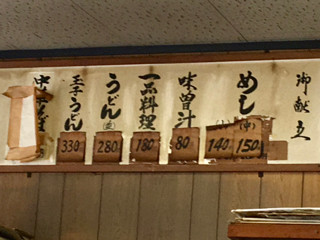 御献立
めし
(中) 150
140
味曽汁
80
一品料理
180
うどん
280
玉子うどん
330